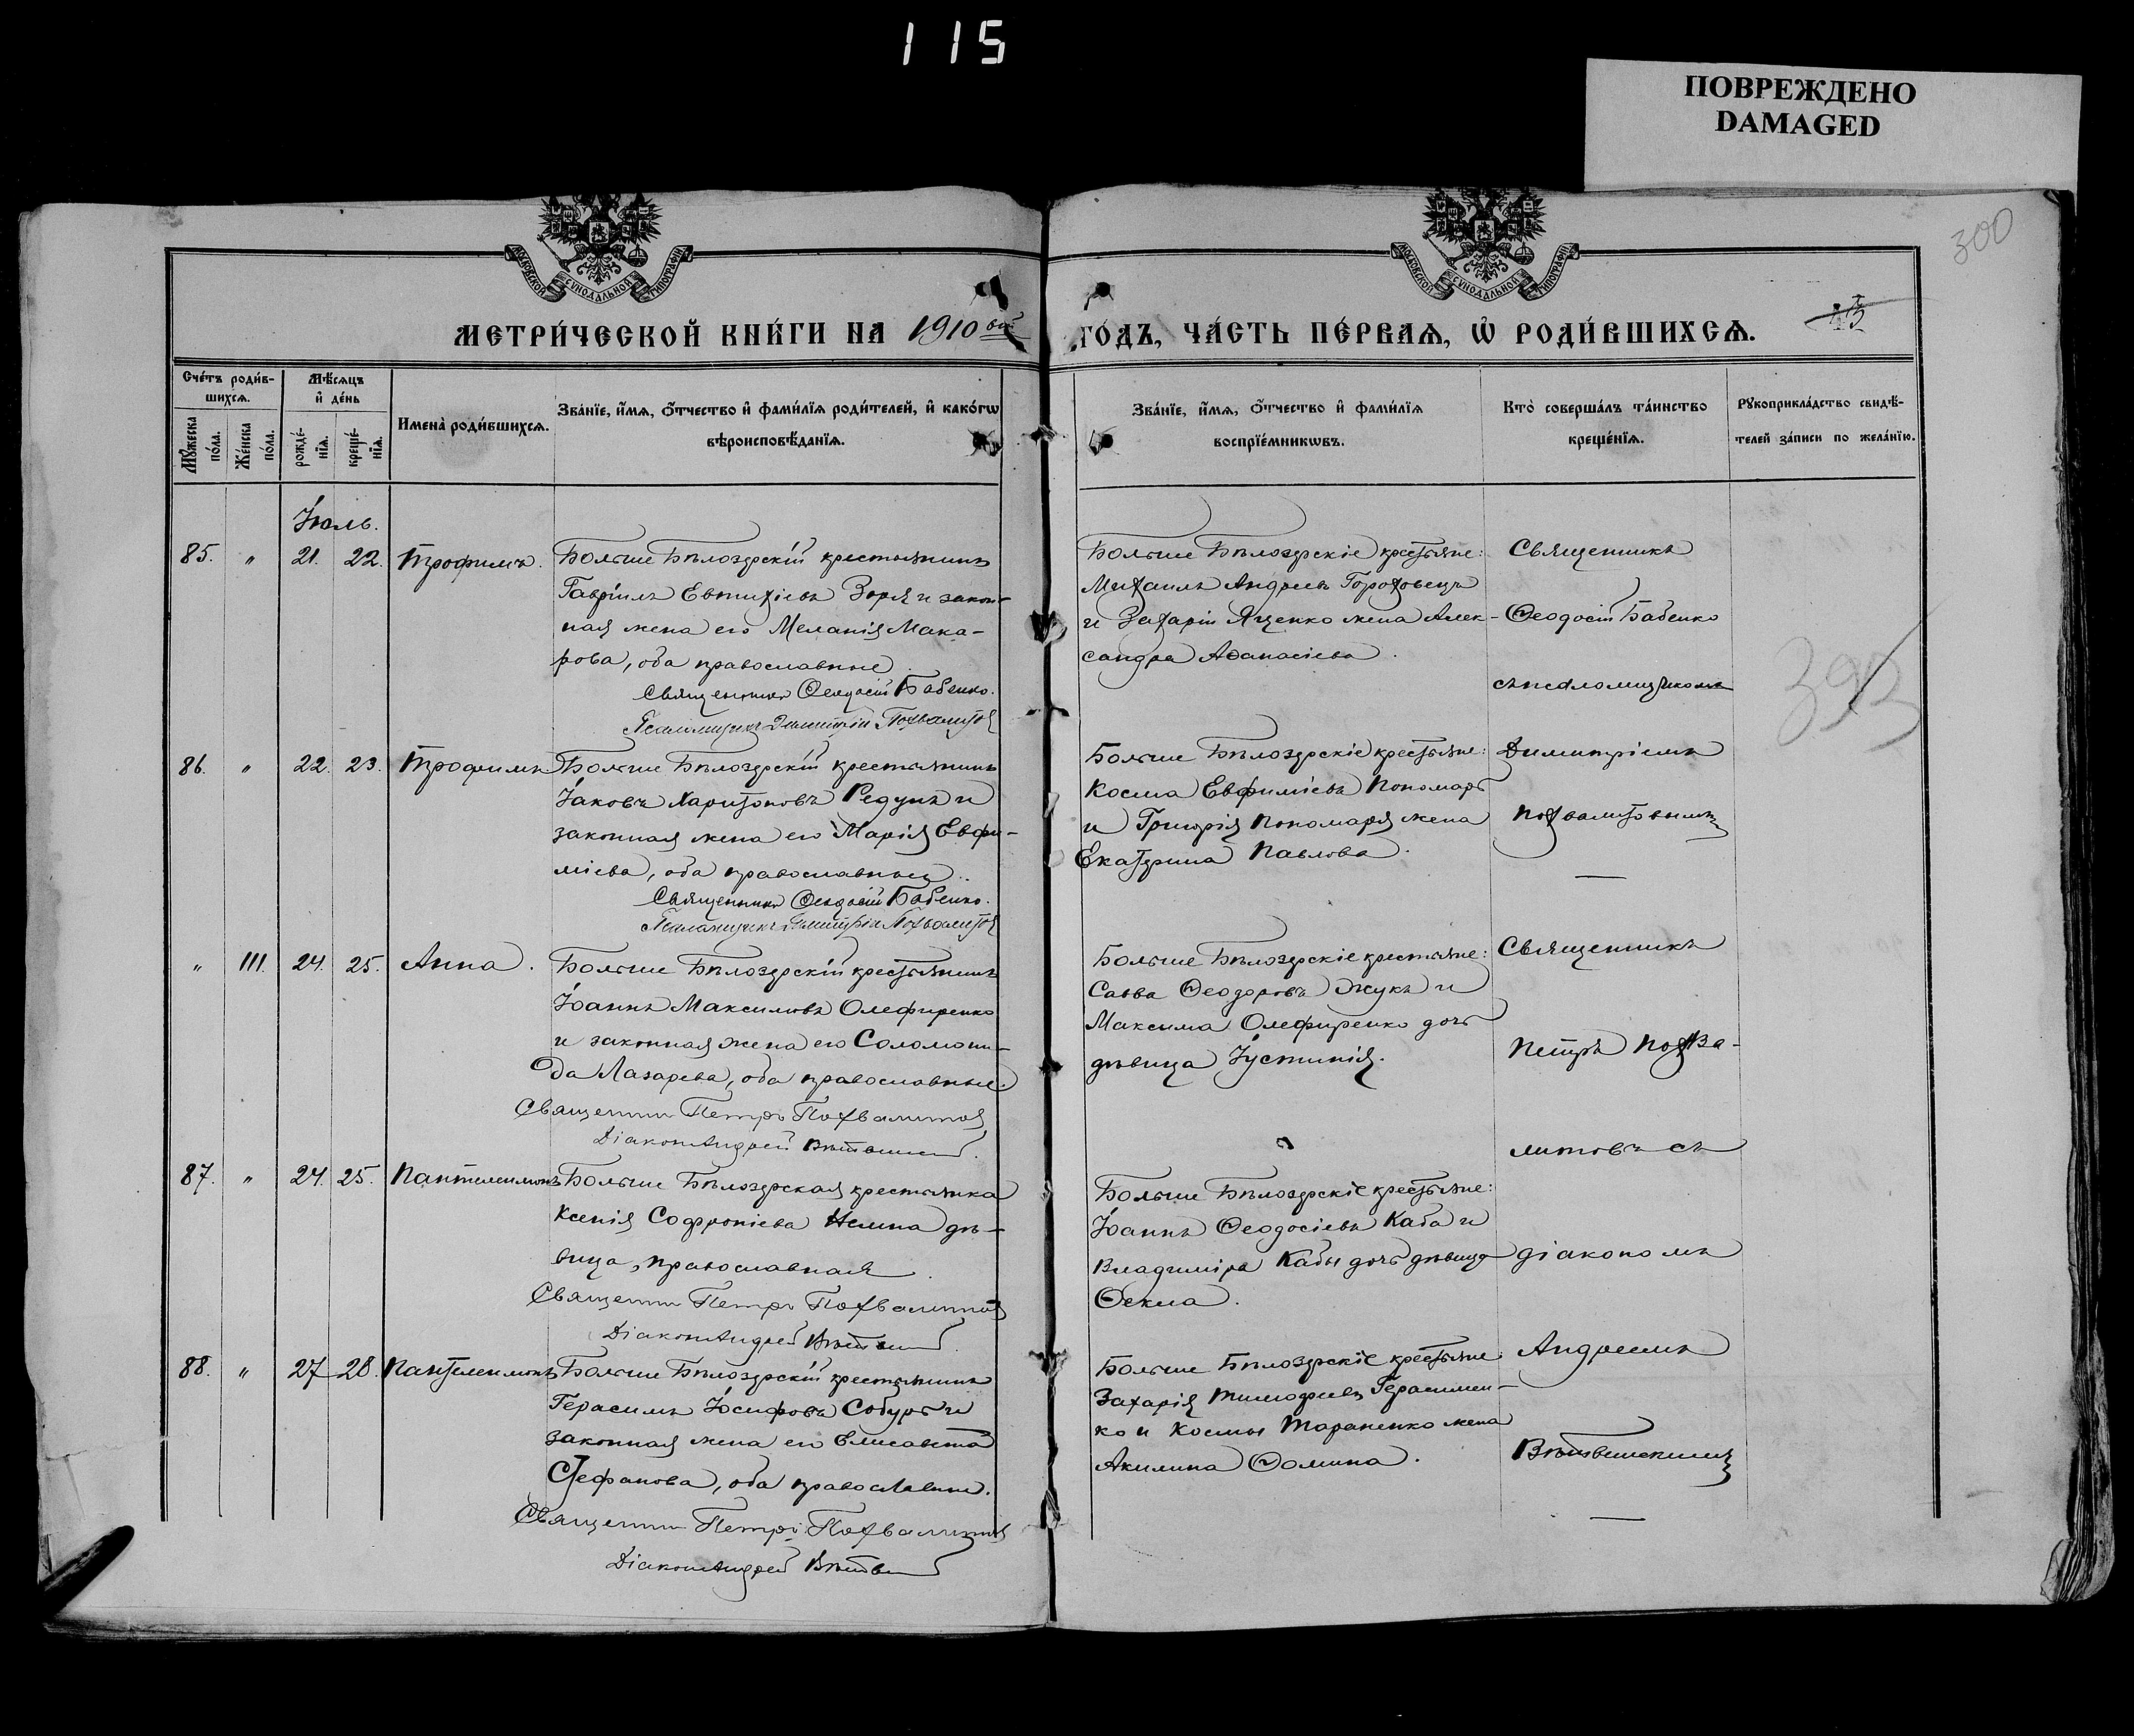 115
ПОВРЕЖДЕНО
DAMAGED
300
МОСКОВСКОЙ СУНОДАЛЬНОЙ ТИПОГРАФІИ
МОСКОВСКОЙ СУНОДАЛЬНОЙ ТИПОГРАФІИ
МЕТРИ́ЧЕСКОЙ КНИ́ГИ НА 1910 вый
ГО́ДЪ, ЧА́СТЬ ПЕ́РВАѦ, Ѡ҆ РОДИ́ВШИХСѦ.
Сче́тъ роди́в-
шихсѧ.
Мꙋжеска по́ла.
Же́нска по́ла.
Мѣ́сѧцъ
и҆ де́нь
рожде́-
нїѧ.
креще́-
нїѧ.
Имена̀ роди́вшихсѧ.
Зва́нїе, и҆́мѧ, ѻ҆́тчество и҆ фами́лїѧ роди́телей, и҆ како́гѡ
вѣроисповѣ́данїѧ.
Зва́нїе, и҆́мѧ, ѻ҆́тчество и҆ фами́лїѧ
воспрїе́мникѡвъ.
Кто̀ соверша́лъ та́инство
креще́нїѧ.
Рꙋкоприкла́дство свидѣ́-
телей за́писи по жела́нїю.
Іюль.
85. " 21. 22. Трофимъ.
Больше Бѣлозерскій крестьянинъ
Гавріилъ Евтихіевъ Зоря и закон-
ная жена его Меланія Мака-
рова, оба православные.
Священникъ Ѳеодосій Бабенко.
Псаломщикъ Димитрій Похвалитовъ
Больше Бѣлозерскіе крестьяне:
Михаилъ Андреевъ Гороховецъ
и Захарій Яценко жена Алек-
сандра Аѳанасіева.
Священникъ
Ѳеодосій Бабенко
съ псаломщикомъ
393
86. " 22. 23. Трофимъ
Больше Бѣлозерскій крестьянинъ
Іаковъ Харитоновъ Редунъ и
законная жена его Марія Евфи-
міева, оба православные.
Священникъ Ѳеодосій Бабенко.
Псаломщикъ Димитрій Похвалитовъ
Больше Бѣлозерскіе крестьяне:
Косма Евфиміевъ Пономарь
и Григорія Пономаря жена
Екатерина Павлова.
Димитріемъ
Похвалитовымъ
" 111. 24. 25. Анна.
Больше Бѣлозерскій крестьянинъ
Іоаннъ Максимовъ Олефиренко
и законная жена его Соломони-
да Лазарева, оба православные.
Священникъ Петръ Похвалитовъ
Діаконъ Андрей
Больше Бѣлозерскіе крестьяне:
Савва Ѳеодоровъ Жукъ и
Максима Олефиренко дочь
дѣвица Іустинія.
Священникъ
Петръ Похва-
литовъ съ
87. " 24. 25. Пантелеимонъ
Больше Бѣлозерская крестьянка
Ксенія Софроніева дѣ-
вица, православная.
Священникъ Петръ Похвалитовъ
Діаконъ Андрей
Больше Бѣлозерскіе крестьяне:
Іоаннъ Ѳеодосіевъ Каба и
Владиміра Кабы дочь дѣвица
Ѳекла.
діакономъ
88. " 27 28. Пантелеимонъ
Больше Бѣлозерскій крестьянинъ
Герасимъ Іосифовъ Собурь и
законная жена его Елисавета
Стефанова, оба православные.
Священникъ Петръ Похвалитовъ
Діаконъ Андрей
Больше Бѣлозерскіе крестьяне
Захарія Тимофеевъ Герасимен-
ко и Космы Тараненко жена
Акилина Ѳомина.
Андреемъ